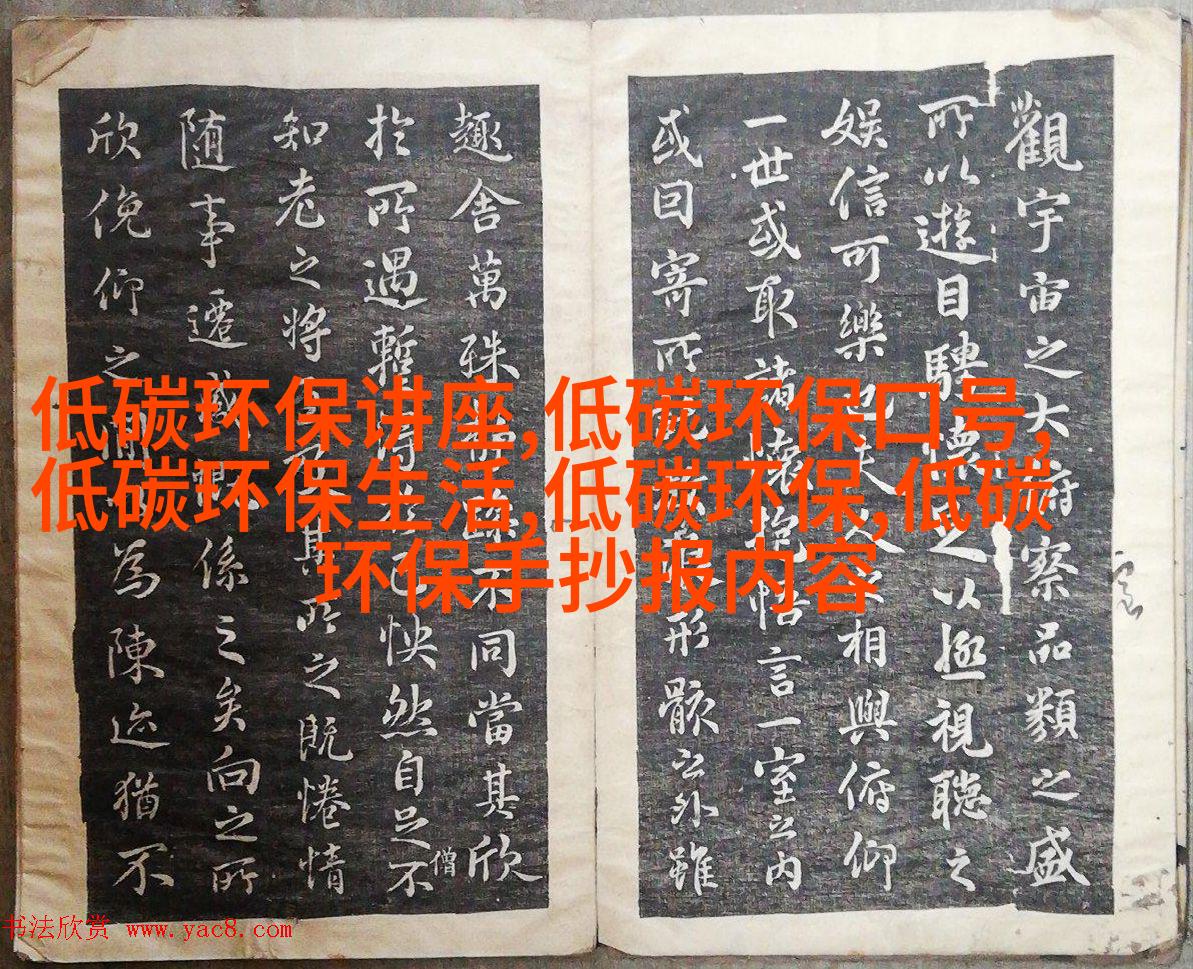 觀宇宙之大府察品類之盛
所以遊目騁懷足以極視聽之
娛信可樂也夫人之相與俯仰
一世或取諸懷抱悟言一室之内
或因寄所形骸之外雖
趣舍萬殊不同當其欣
於所遇暫得於己快然自足不
僧
知老之將至及其所之既惓情
隨事遷感慨係之矣向之所
欣俛仰之間以為陳迹猶不
低碳环保讲座,低碳环保口号,
低碳环保生活,低碳环保,低碳
环保手抄报内容
书法欣赏 www.yac8.com